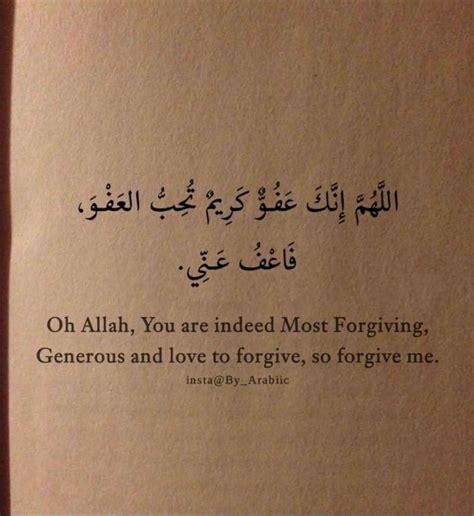 اللَّهُمَّ إِنَّكَ عَفُوٌّ كَرِيمٌ تُحِبُّ العَفْوَ،
فَاعْفُ عَنِّي.
Oh Allah, You are indeed Most Forgiving,
Generous and love to forgive, so forgive me.
insta@By_Arabiic